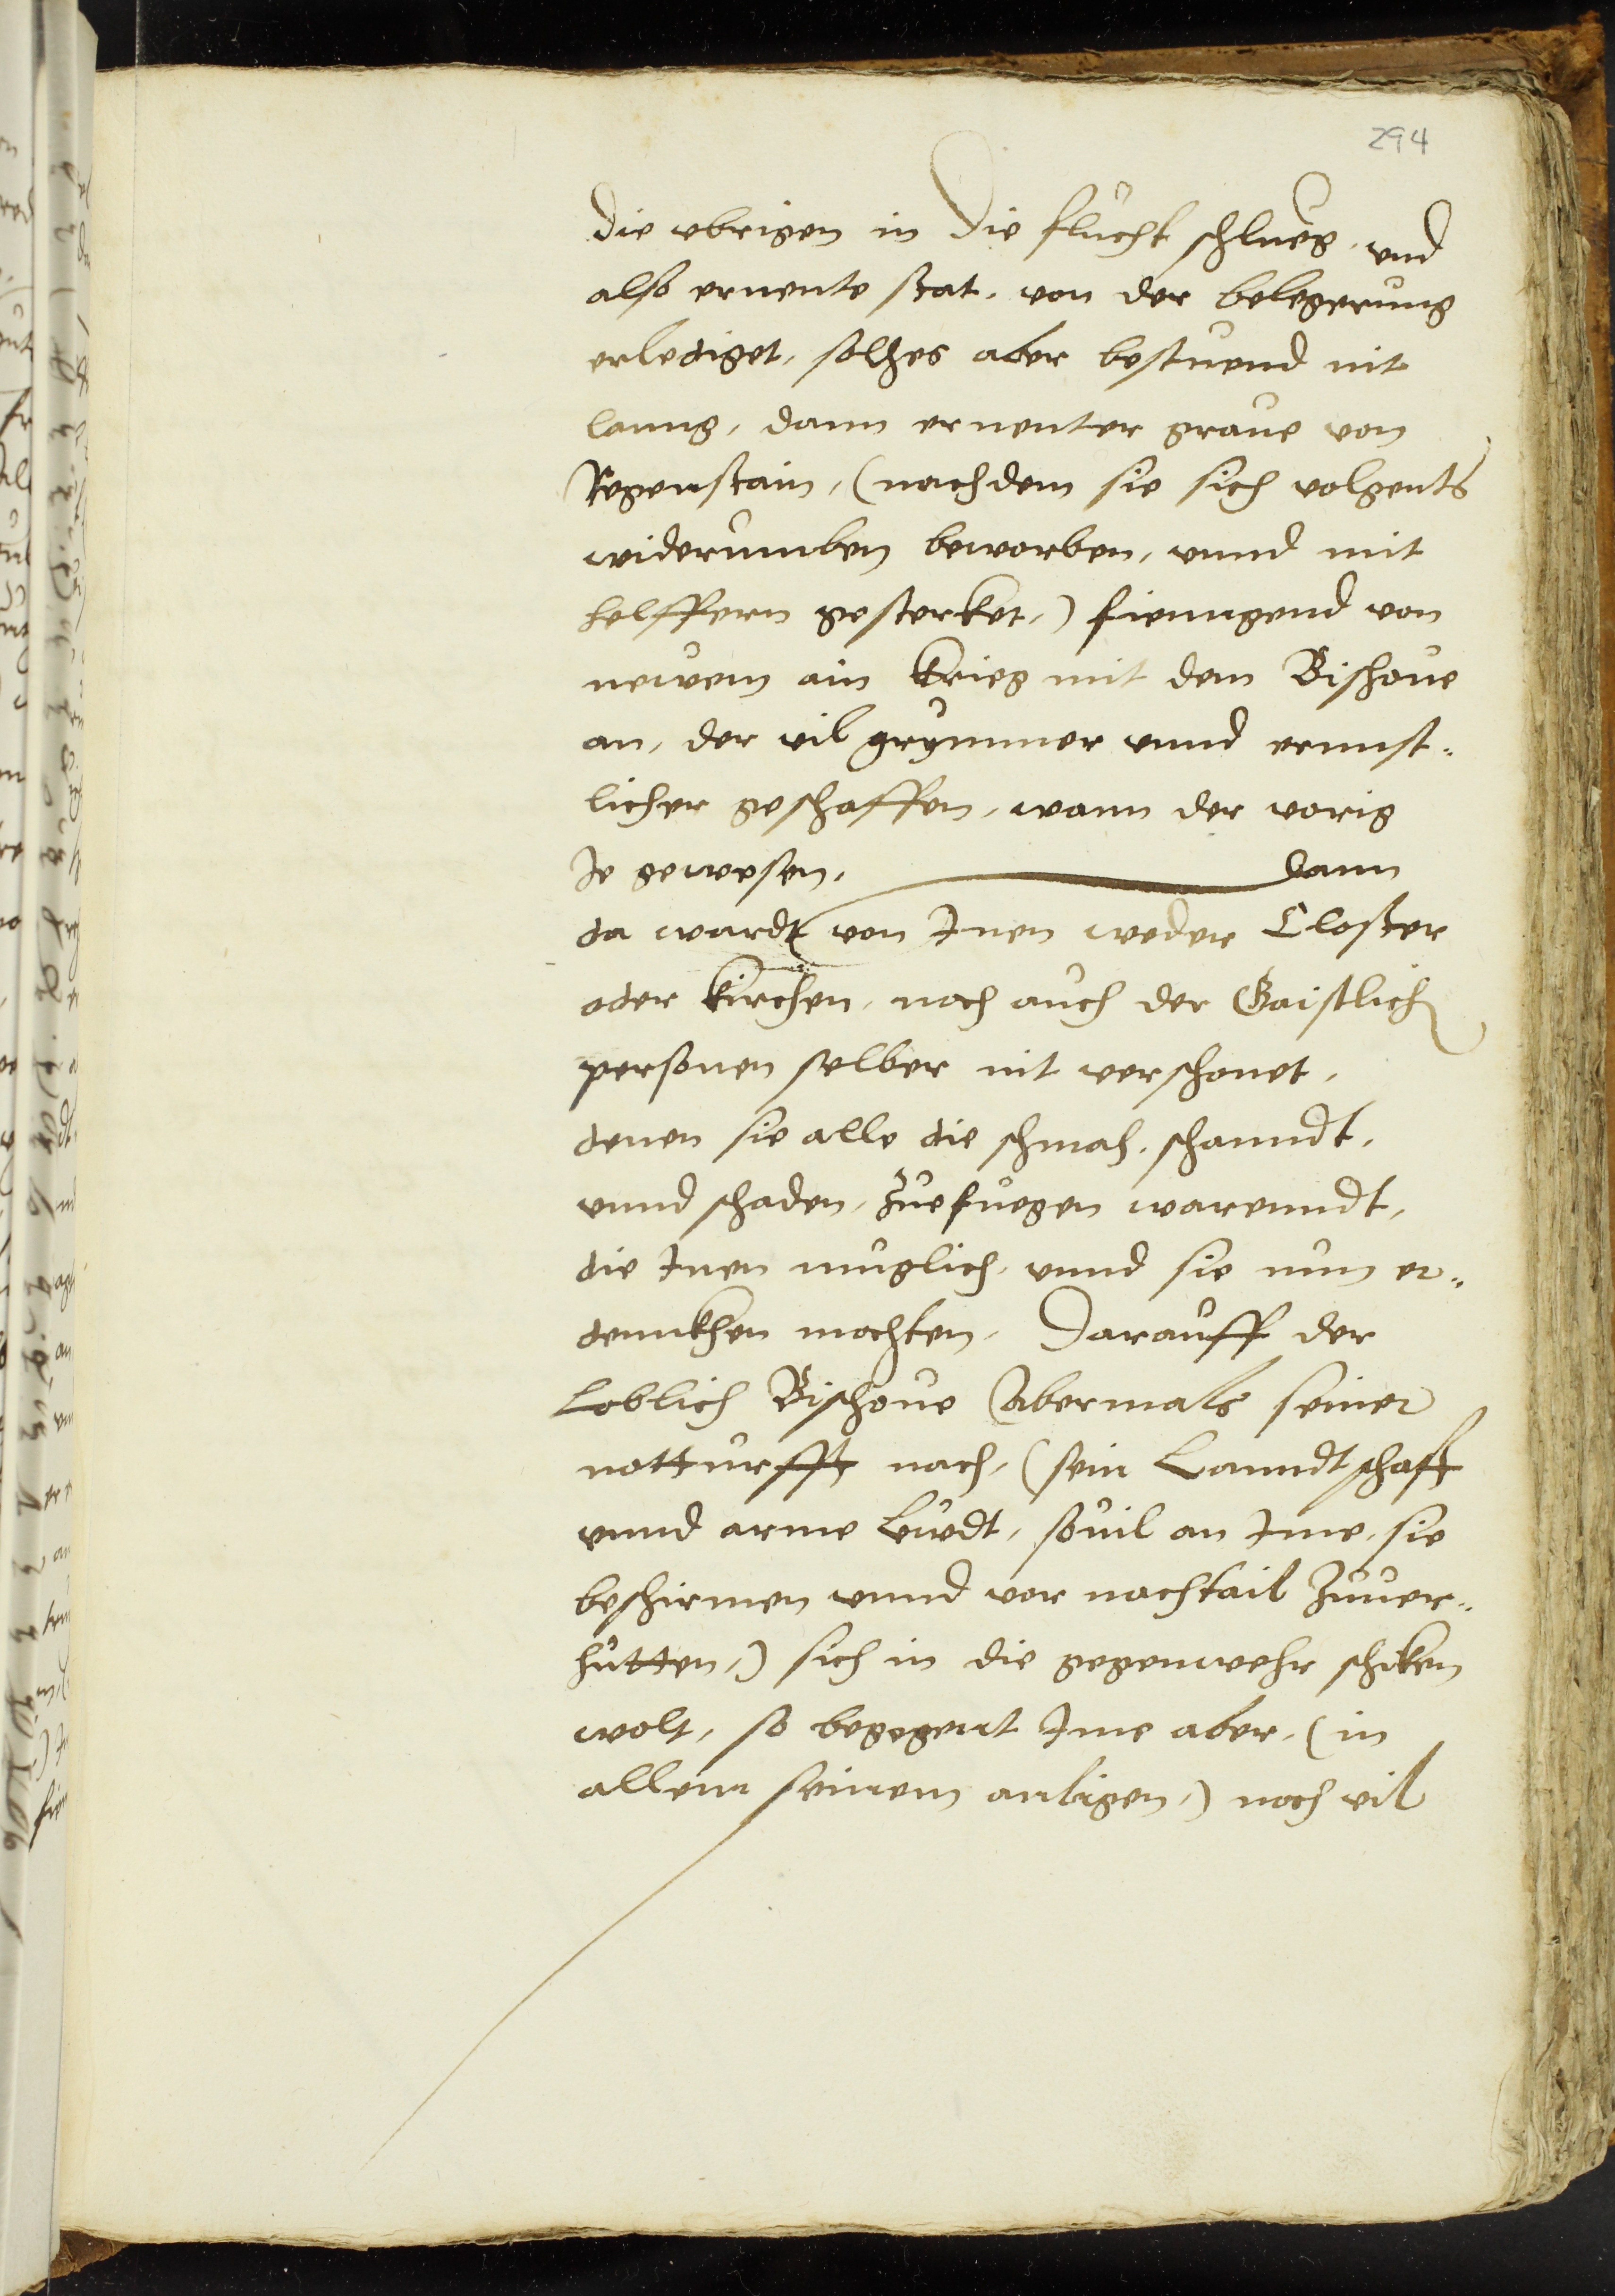 294
die vbrigen in die flucht schlueg, vnd
also ernente stat, von der belegerung
erlediget, solhes aber bestuend nit
lanng, dann ernenter graue von
Regenstain, (nachdem sie sich volgents
widerumben beworben, vnnd mit
helffern gesterket,) fienngend von
newem ain krieg mit dem Bischoue
an, der vil grymmer vnnd ernnst-
licher geschaffen, wann der vorig
Je gewesen, dann
da wardt von Inen weder Closter
oder kirchen, noch auch der Gaistlich
personen selber nit verschonet,
denen sie alle die schmach, schanndt,
vnnd schaden, zuefuegen warenndt,
die Inen muglich, vnnd sie nun er-
dennkhen mochten, Darauff der
Loblich Bischoue Abermals seiner
notturfft nach, (sein Lanndtschafft
vnnd arme leudt, souil an Ime, sie
beschirmen vnnd vor nachtail zuuer-
hütten,) sich in die gegenwehr schiken
wolt, so begegent Ime aber, (in
allem seinem anligen,) noch vil